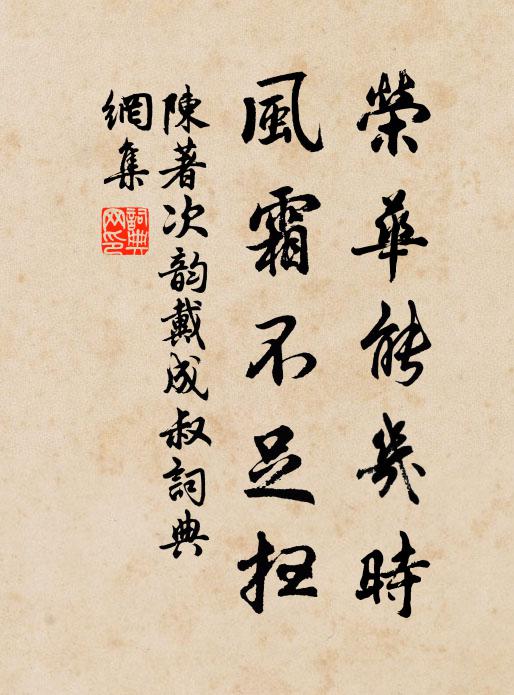 榮華能幾時
風霜不足掃
陳著次韵戴成叔詞典
網集
詞典網印